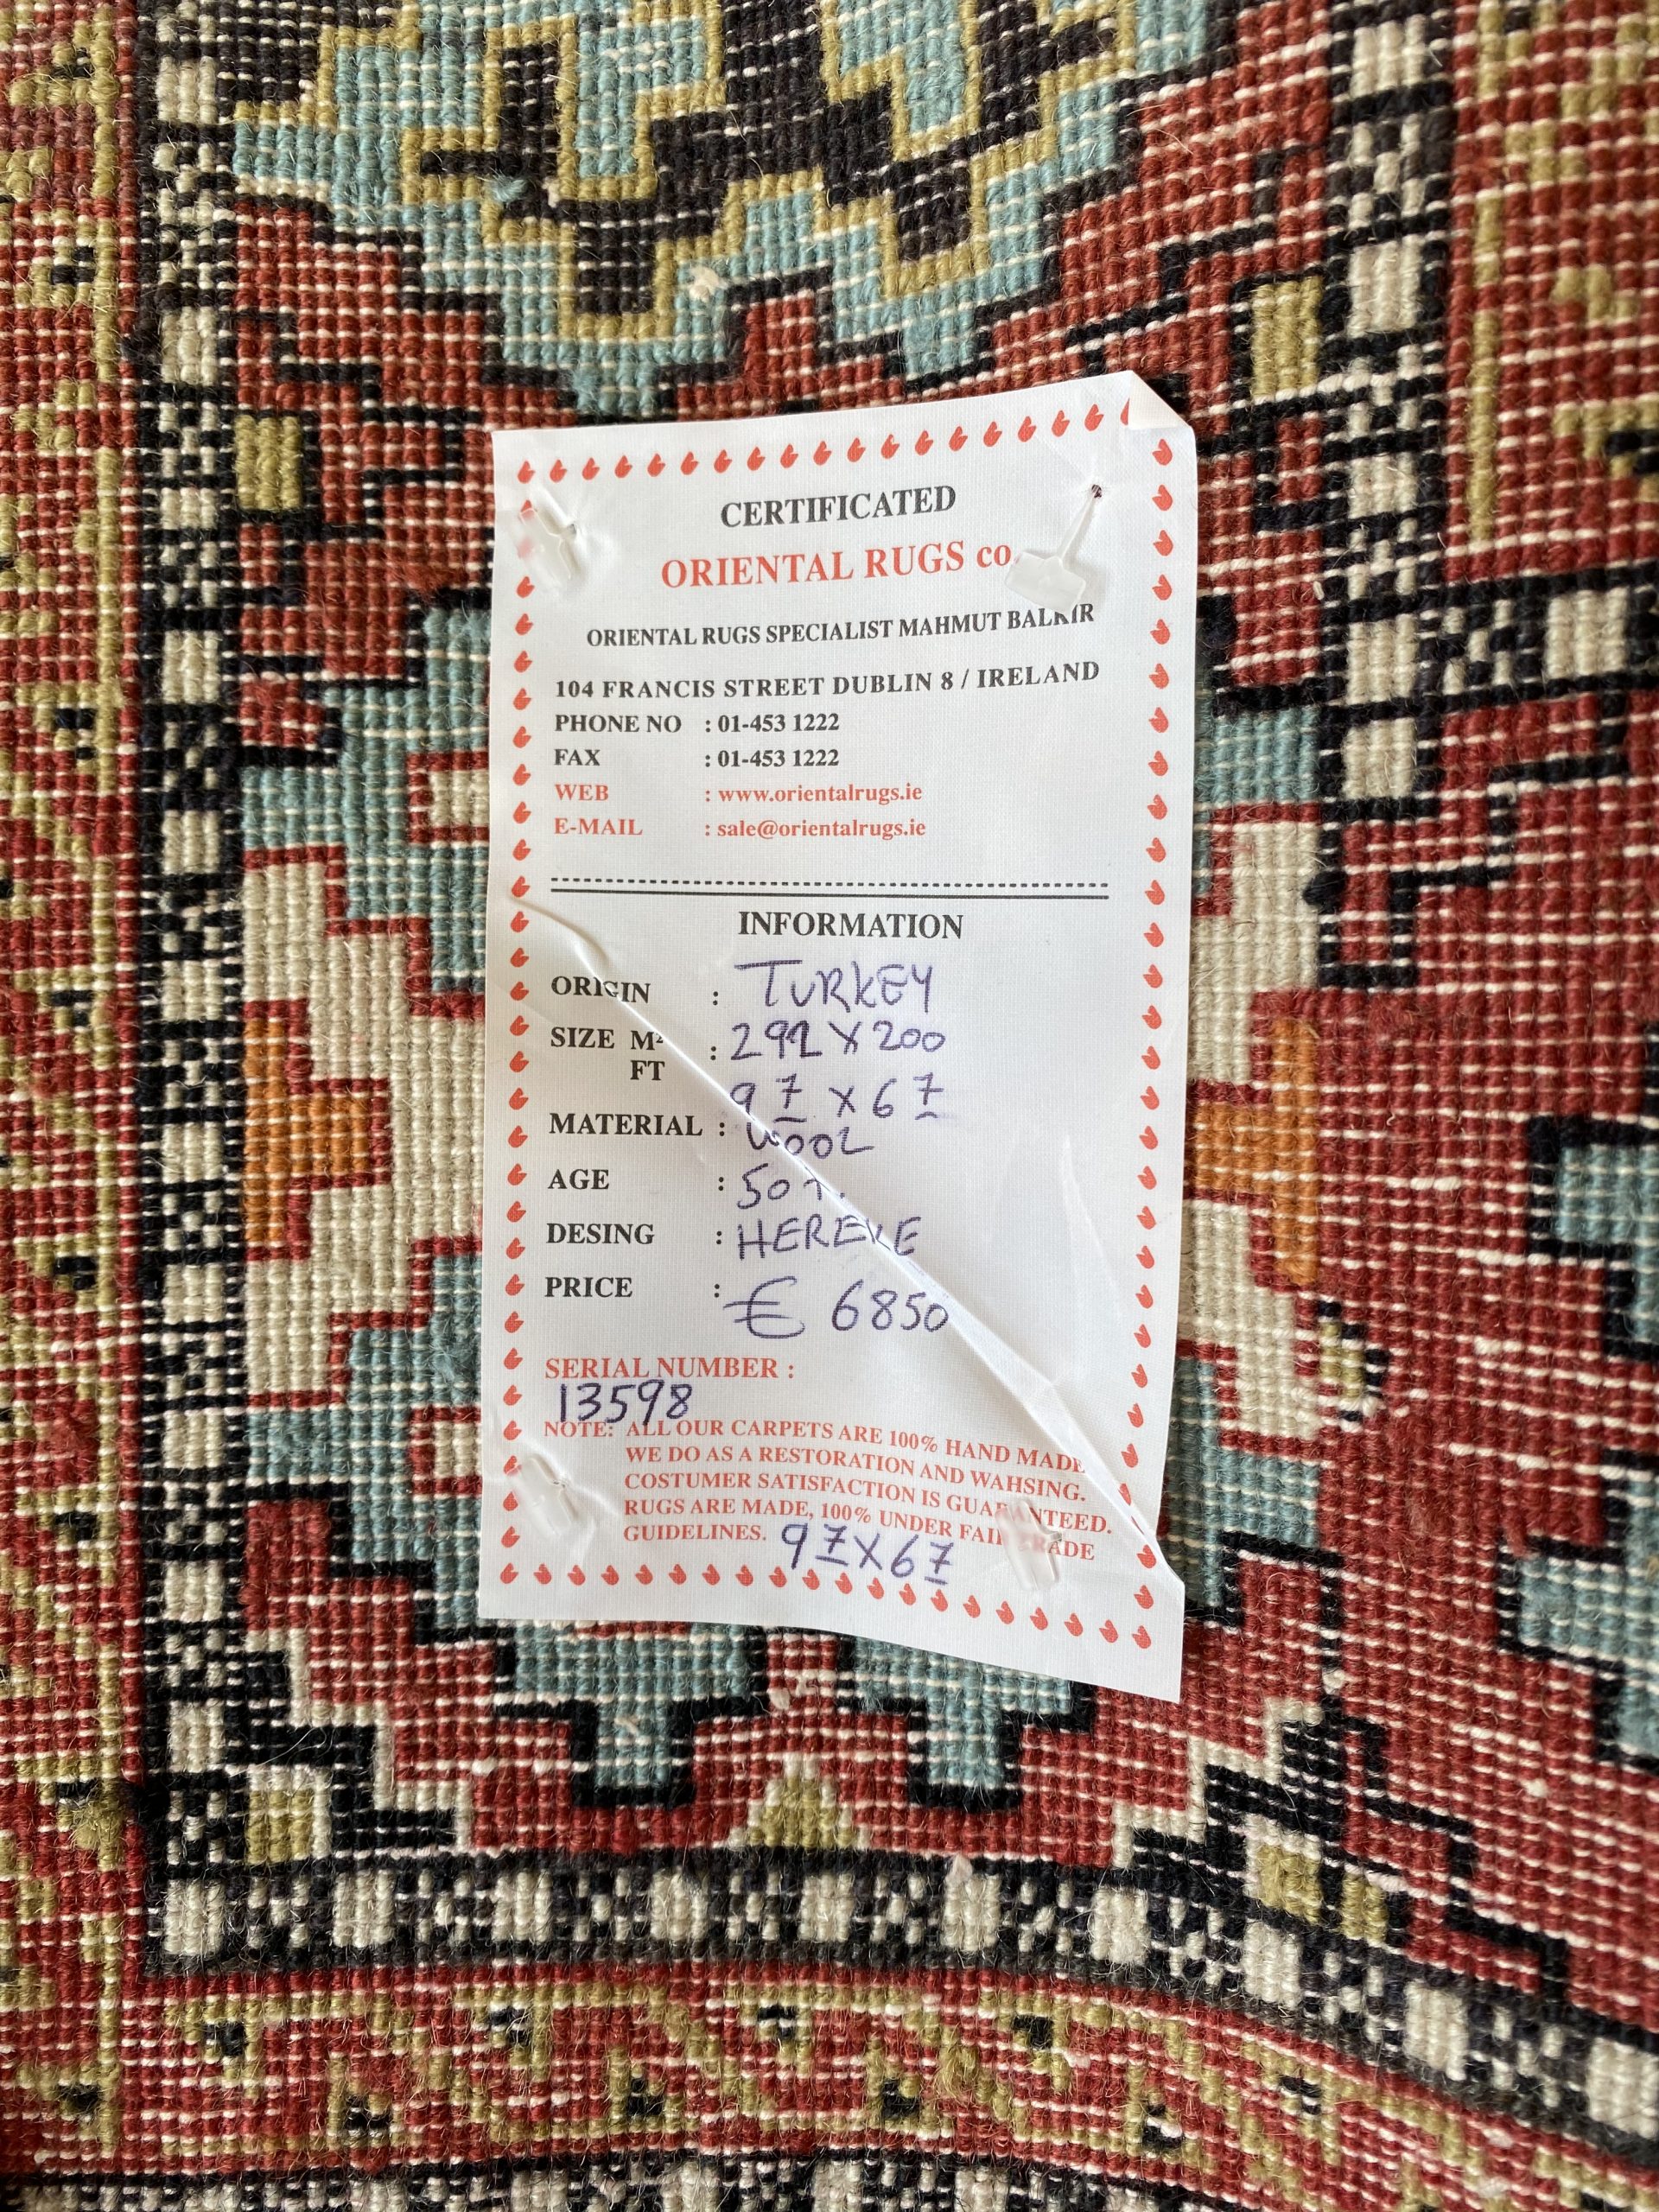 CERTIFICATED
ORIENTAL RUGS co.
ORIENTAL RUGS SPECIALIST MAHMUT BALKIR
104 FRANCIS STREET DUBLIN 8 / IRELAND
PHONE NO : 01-453 1222
FAX : 01-453 1222
WEB : www.orientalrugs.ie
E-MAIL : sale@orientalrugs.ie
INFORMATION
ORIGIN : TURKEY
SIZE M² : 292 X 200
FT 9 7 X 6 7
MATERIAL : WOOL
AGE : 50
DESING : HEREKE
PRICE : € 6850
SERIAL NUMBER :
13598
NOTE: ALL OUR CARPETS ARE 100% HAND MADE
WE DO AS A RESTORATION AND WAHSING.
COSTUMER SATISFACTION IS GUARANTEED.
RUGS ARE MADE, 100% UNDER FAIR TRADE
GUIDELINES. 9 7 X 6 7